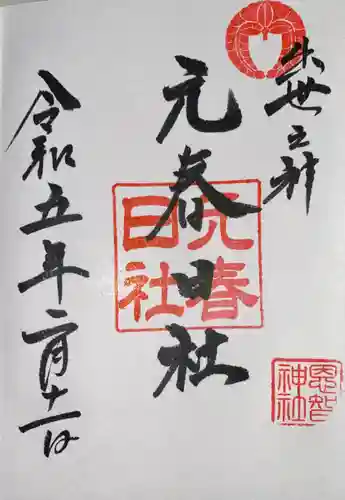 出世之神
元春日社
令和五年二月十一日
元春
日社
恩智
神社